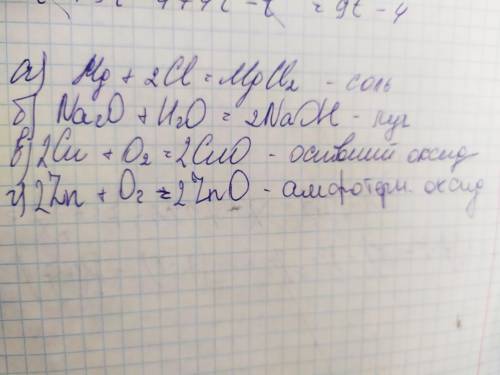 = 9t - 4
а) Mg + 2Cl = MgCl2 - соль
б) Na2O + H2O = 2NaOH - луг
в) 2Cu + O2 = 2CuO - оксид
г) 2Zn + O2 = 2ZnO - амфотерн. оксид